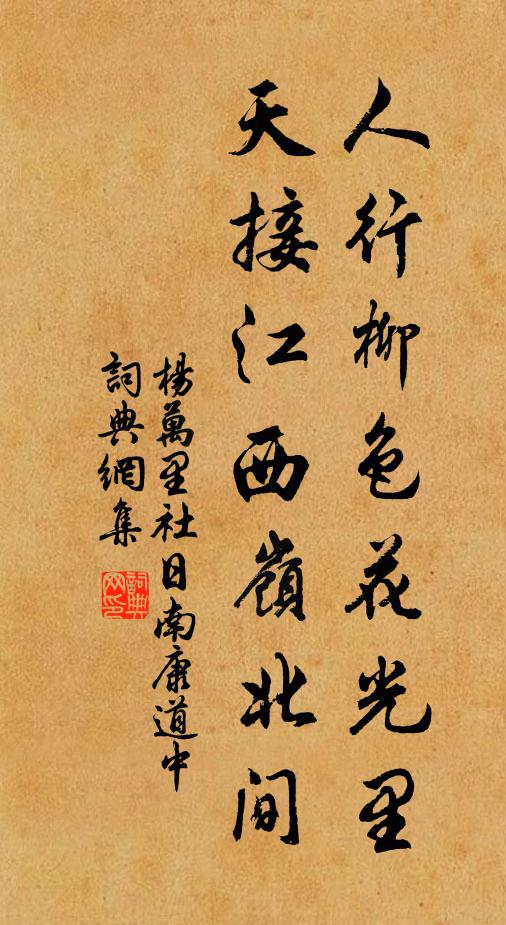 人行柳色花光里
天接江西嶺北間
楊萬里社日南康道中
詞典網集
詞典网印